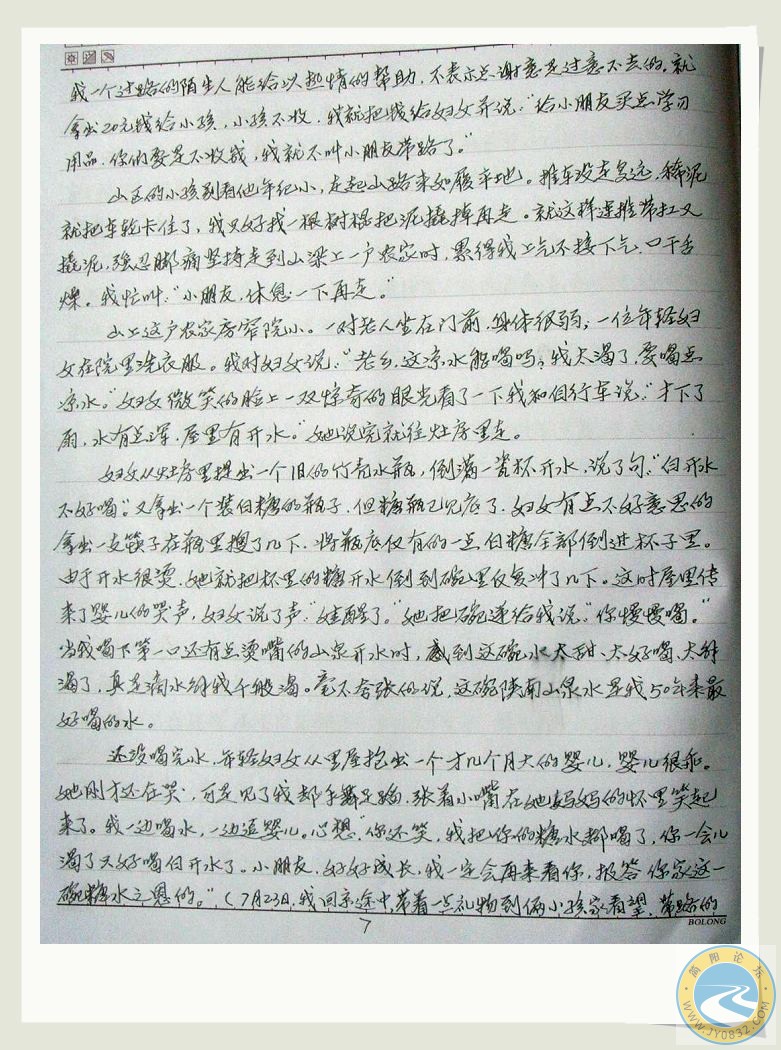 我一个过路的陌生人能给以热情的帮助，不表示点谢意是过意不去的。就
拿出20元钱给小孩，小孩不收，我就把钱给妇女并说：“给小朋友买点学习
用品，你们要是不收钱，我就不叫小朋友带路了。”
山区的小孩别看他年纪小，走起山路来如履平地。推车没走多远，稀泥
就把车轮卡住了，我只好找一根树棍把泥撬掉再走。就这样连推带扛又
撬泥，强忍脚痛坚持走到山梁上一户农家时，累得我上气不接下气，口干舌
燥。我忙叫：“小朋友，休息一下再走。”
山上这户农家房窄院小。一对老人坐在门前，身体很弱，一位年轻妇
女在院里洗衣服。我对妇女说：“老乡，这凉水能喝吗，我太渴了，要喝点
凉水。”妇女微笑的脸上一双惊奇的眼光看了一下我和自行车说：“才下了
雨，水有点浑，屋里有开水。”她说完就往灶房里走。
妇女从灶房里提出一个旧的竹壳水瓶，倒满一瓷杯开水，说了句：“白开水
不好喝”。又拿出一个装白糖的瓶子，但糖瓶已见底了，妇女有点不好意思的
拿出一支筷子在瓶里搜了几下，将瓶底仅有的一点白糖全部倒进杯子里。
由于开水很烫，她就把杯里的糖开水倒到碗里反复冲了几下。这时屋里传
来了婴儿的哭声，妇女说了声：“娃醒了。”她把碗递给我说：“你慢慢喝。”
当我喝下第一口还有点烫嘴的山泉开水时，感到这碗水太甜、太好喝、太解
渴了，真是滴水解我千般渴。毫不夸张的说，这碗陕南山泉水是我50年来最
好喝的水。
还没喝完水，年轻妇女从里屋抱出一个才几个月大的婴儿，婴儿很乖。
她刚才还在哭，可是见了我却手舞足蹈，张着小嘴在她妈妈的怀里笑起
来了。我一边喝水，一边逗婴儿。心想“你还笑，我把你的糖水都喝了，你一会儿
渴了只好喝白开水了。小朋友，好好成长，我一定会再来看你，报答你家这一
碗糖水之恩的。”（7月23日，我回京途中，带着一些礼物到俩小孩家看望，带路的
7
BOLONG
简阳论坛
WWW.JY0832.COM